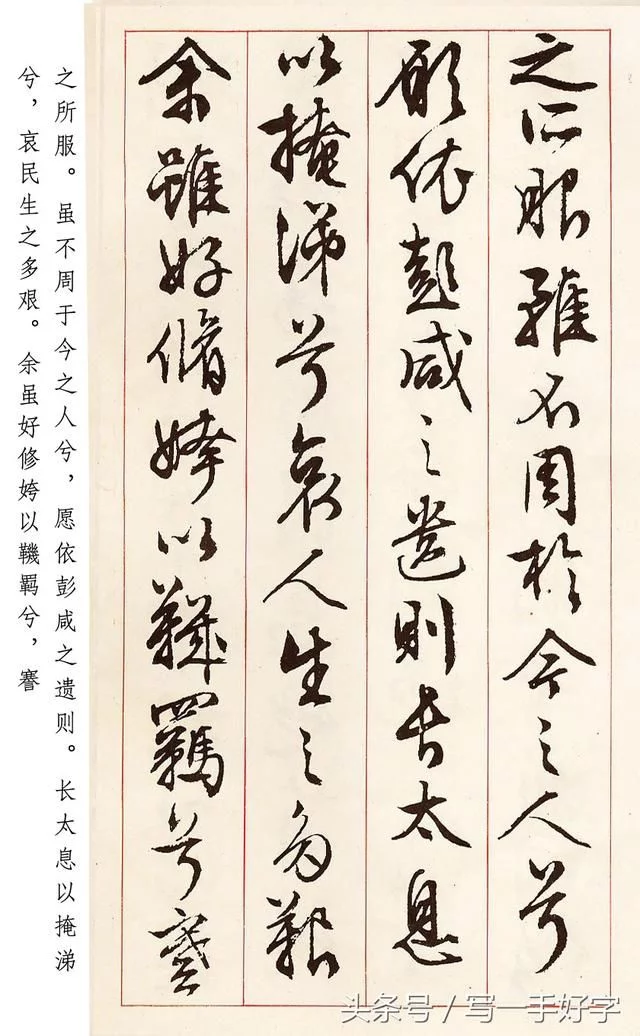 之所服雖不周於今之人兮
願依彭咸之遺則長太息
以掩涕兮哀人生之多艱
余雖好脩姱以鞿羈兮謇
之所服。虽不周于今之人兮，愿依彭咸之遗则。长太息以掩涕
兮，哀民生之多艰。余虽好修姱以鞿羁兮，謇
头条号 / 写一手好字